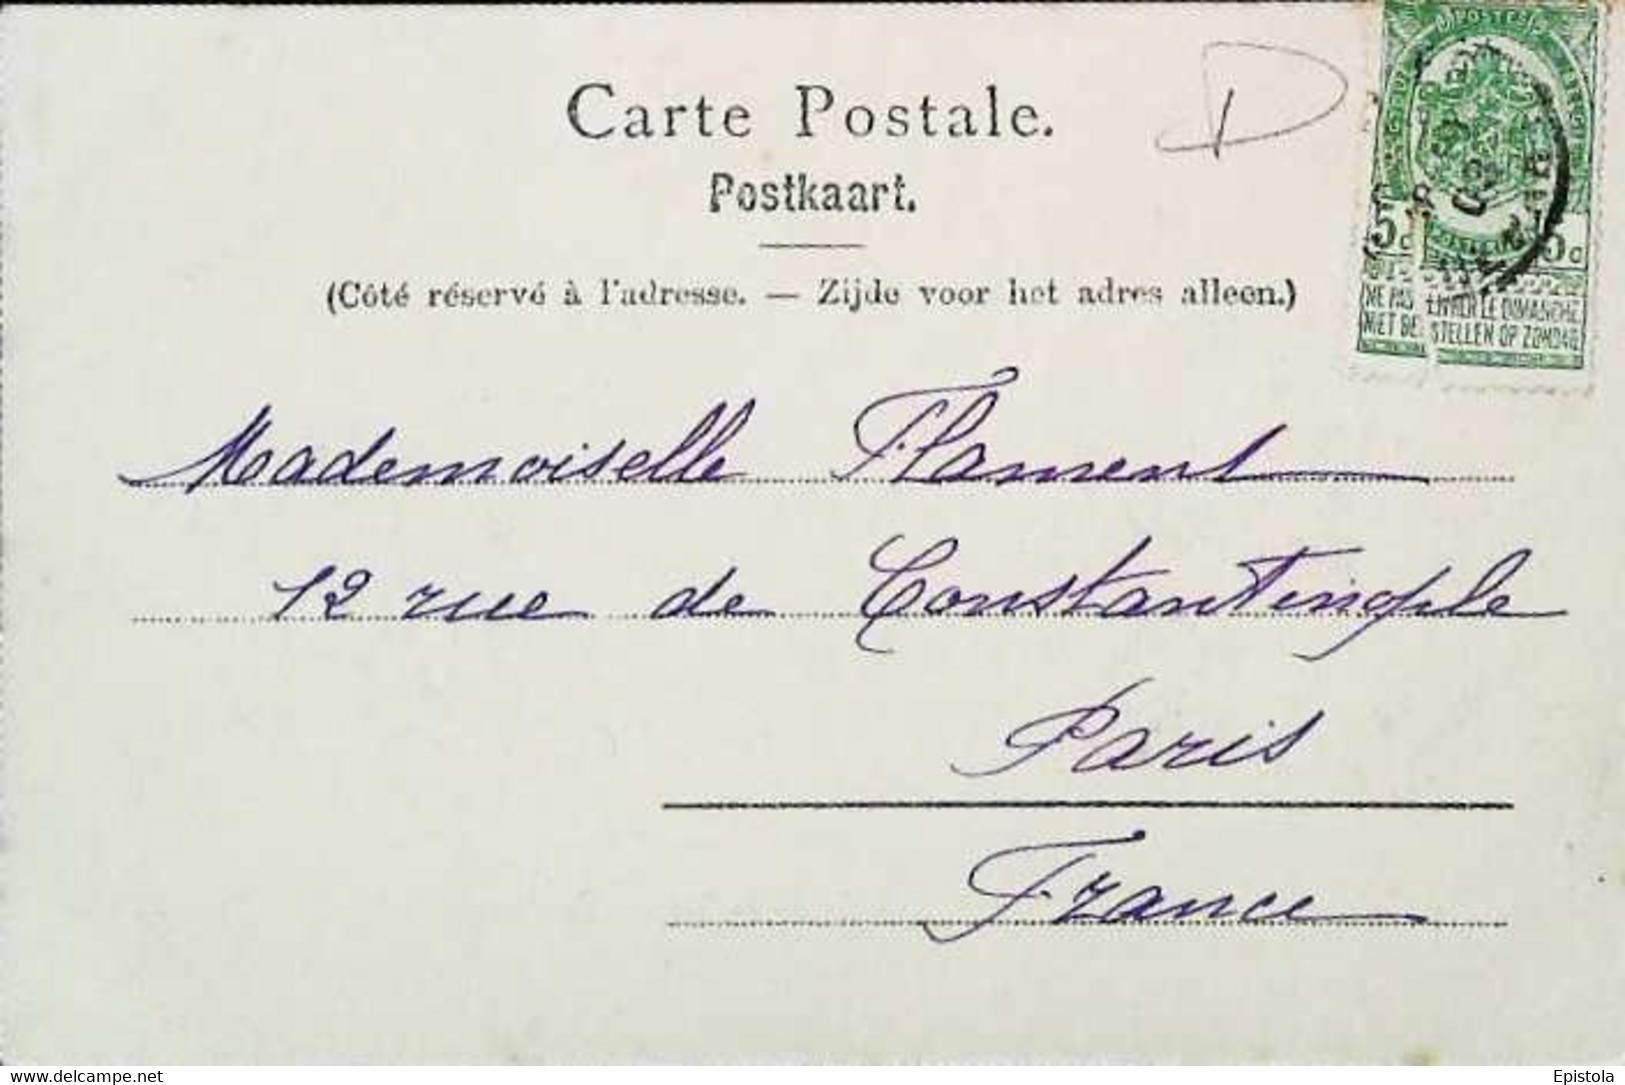 Carte Postale.
Postkaart.
(Côté réservé à l'adresse. — Zijde voor het adres alleen.)
D
POSTES
5c 5c
NE PAS LIVRER LE DIMANCHE
NIET BESTELLEN OP ZONDAG
Mademoiselle Flament
12 rue de Constantinople
Paris
France
delcampe.net
Epistola